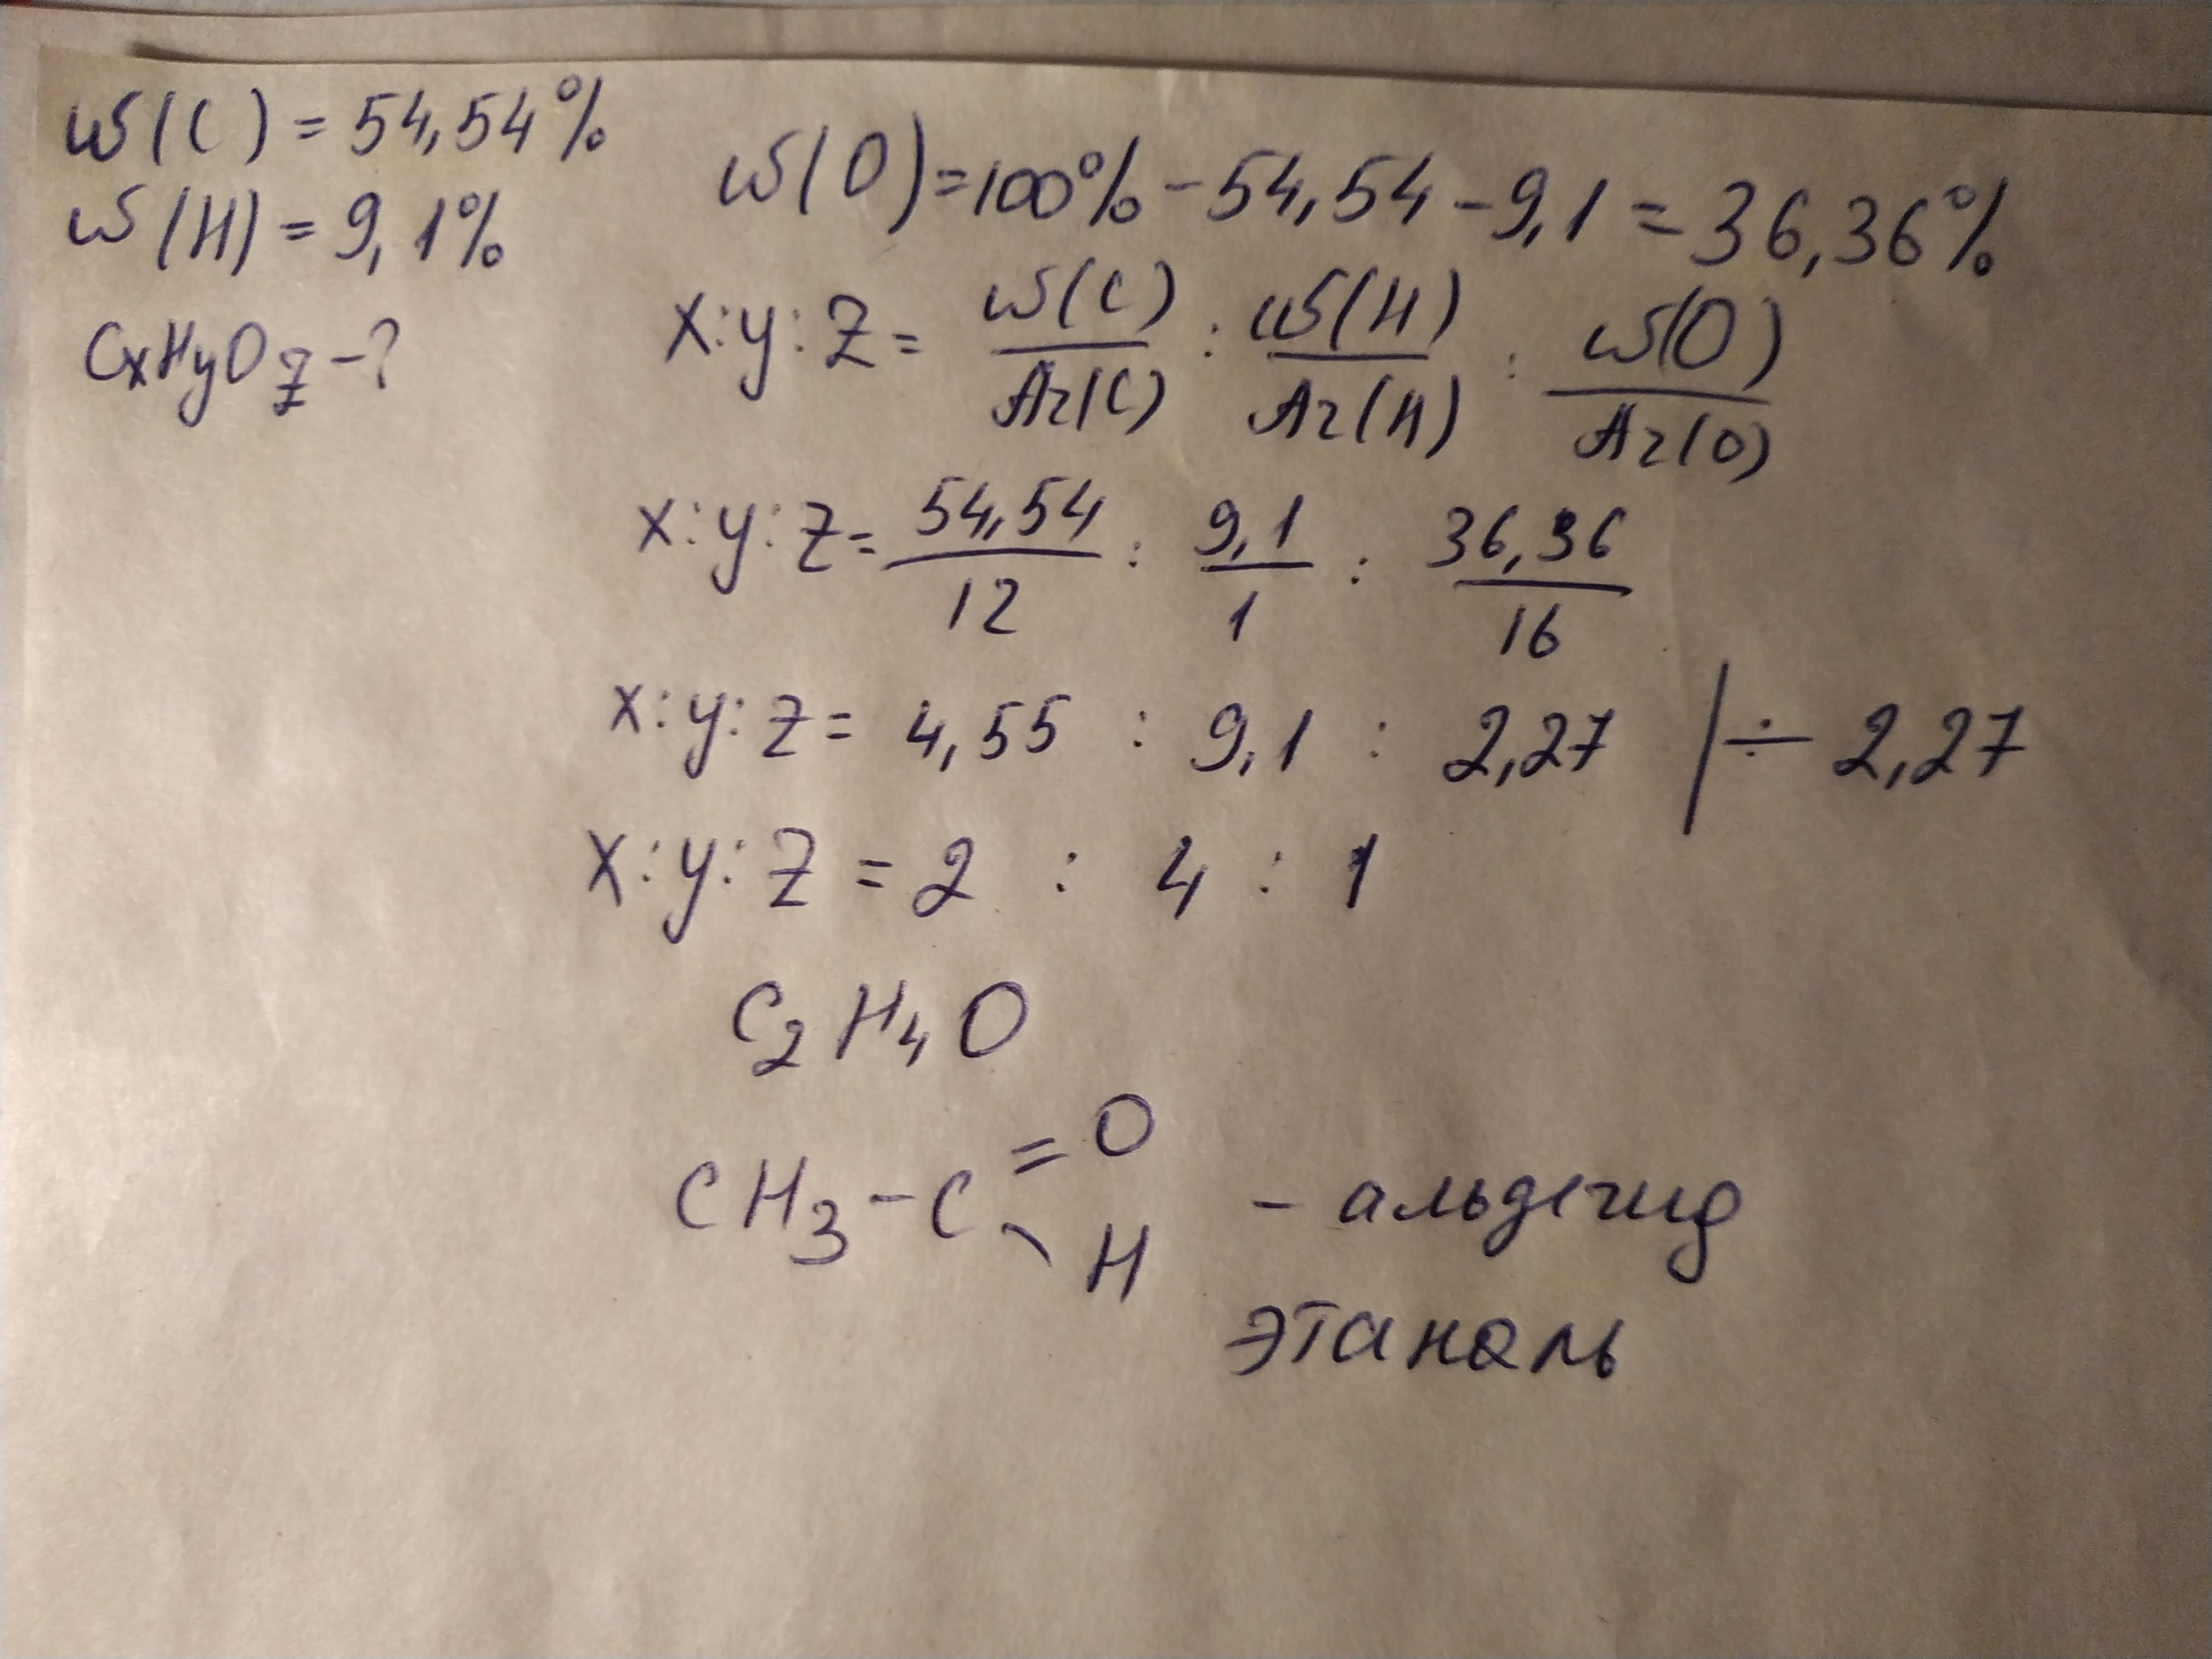 W(C) = 54,54%
W(H) = 9,1%
CxHyOz - ?
W(O) = 100% - 54,54 - 9,1 = 36,36%
x:y:z = W(C)/Ar(C) : W(H)/Ar(H) : W(O)/Ar(O)
x:y:z = 54,54/12 : 9,1/1 : 36,36/16
x:y:z = 4,55 : 9,1 : 2,27 | ÷ 2,27
x:y:z = 2 : 4 : 1
C₂H₄O
CH₃-C =O \H - альдегид
этаналь